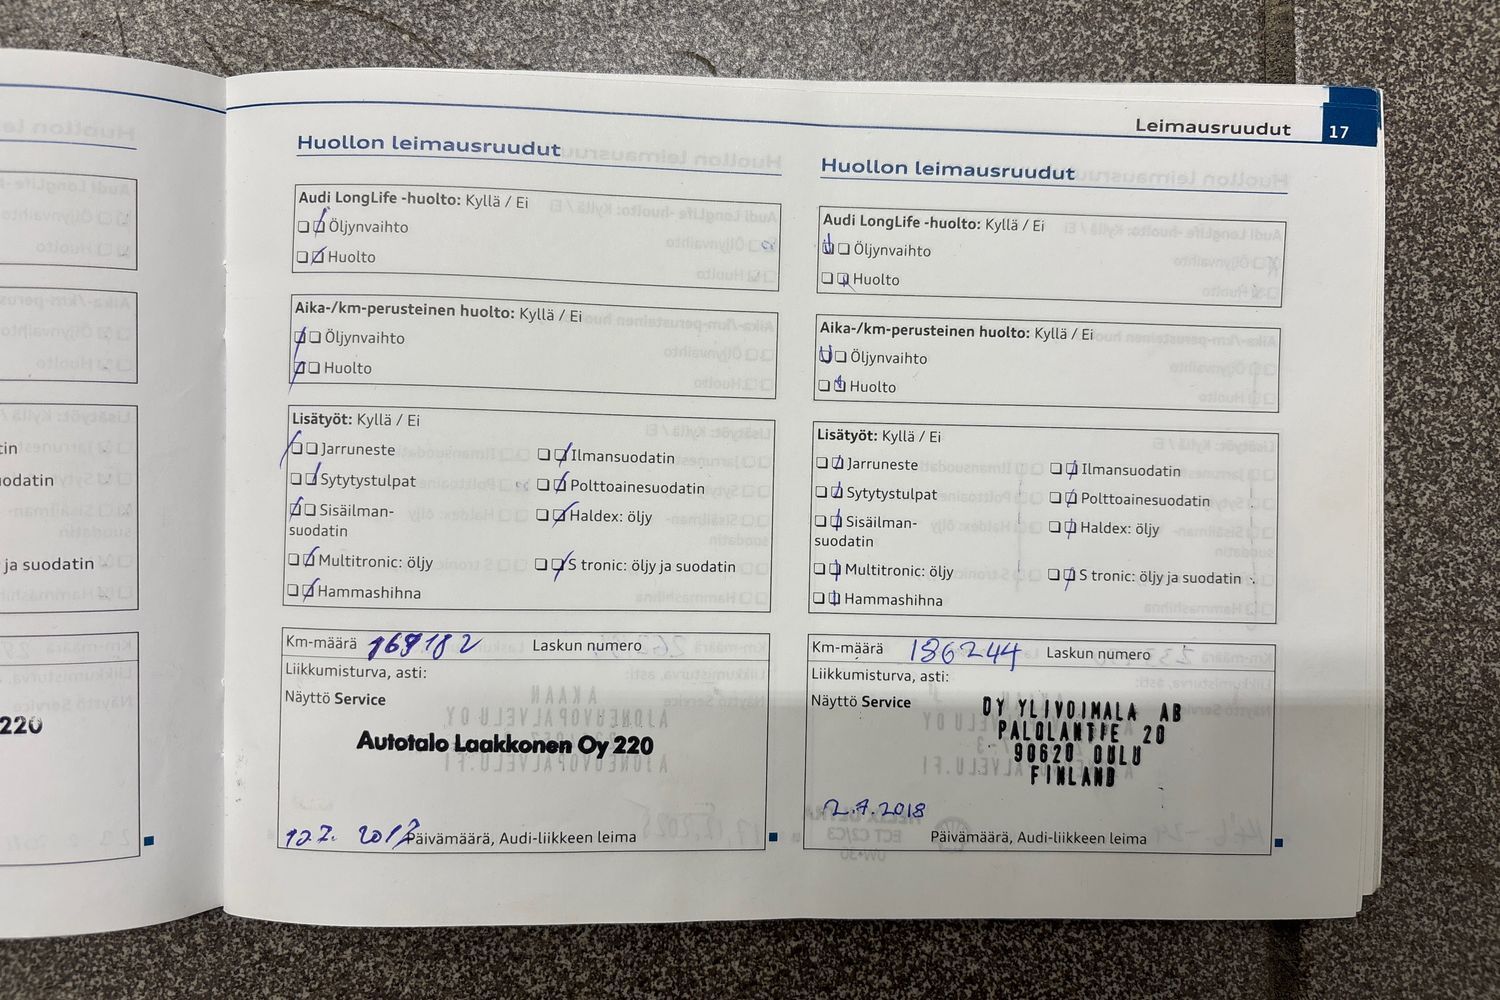 Leimausruudut 17
Huollon leimausruudut
Audi LongLife -huolto: Kyllä / Ei
Öljynvaihto
Huolto
Aika-/km-perusteinen huolto: Kyllä / Ei
Öljynvaihto
Huolto
Lisätyöt: Kyllä / Ei
Jarruneste
Sytytystulpat
Sisäilman-
suodatin
Multitronic: öljy
Hammashihna
Ilmansuodatin
Polttoainesuodatin
Haldex: öljy
S tronic: öljy ja suodatin
Km-määrä 169182 Laskun numero
Liikkumisturva, asti:
Näyttö Service
Autotalo Laakkonen Oy 220
12.7. 2017 Päivämäärä, Audi-liikkeen leima
Huollon leimausruudut
Audi LongLife -huolto: Kyllä / Ei
Öljynvaihto
Huolto
Aika-/km-perusteinen huolto: Kyllä / Ei
Öljynvaihto
Huolto
Lisätyöt: Kyllä / Ei
Jarruneste
Sytytystulpat
Sisäilman-
suodatin
Multitronic: öljy
Hammashihna
Ilmansuodatin
Polttoainesuodatin
Haldex: öljy
S tronic: öljy ja suodatin
Km-määrä 186244 Laskun numero
Liikkumisturva, asti:
Näyttö Service
OY YLIVOIMALA AB
PALOLANTIE 20
90620 OULU
FINLAND
2.7.2018
Päivämäärä, Audi-liikkeen leima
ja suodatin
220